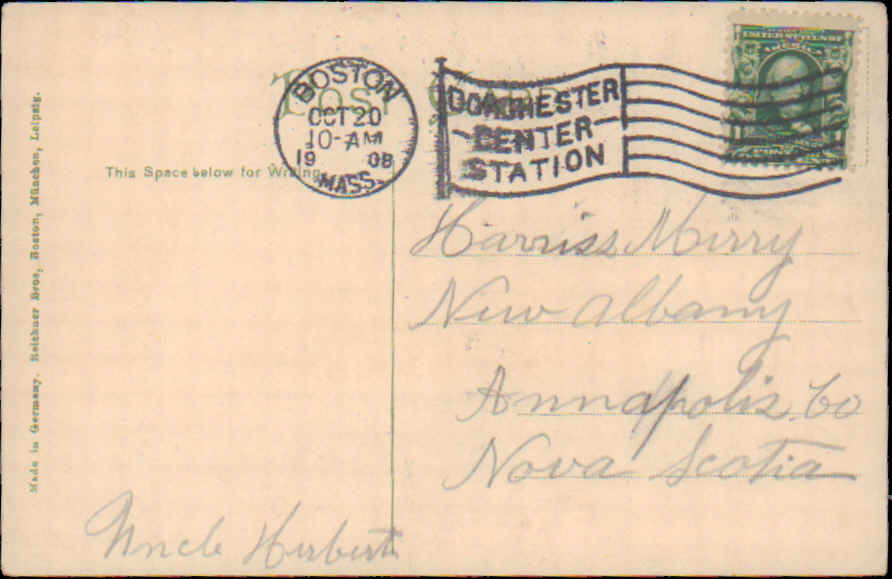 POST CARD
BOSTON
OCT 20
10-AM
19 08
MASS.
DORCHESTER
CENTER
STATION
UNITED STATES OF
AMERICA
This Space below for Writing
Made in Germany. Reichner Bros, Boston, München, Leipzig.
Harriss Merry
New Albany
Annapolis Co
Nova Scotia
Uncle Herbert